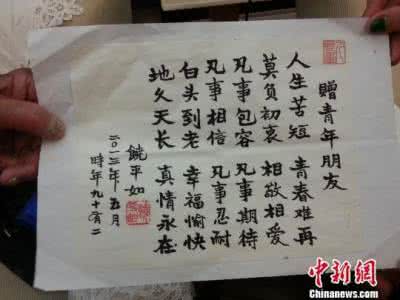 贈青年朋友
人生苦短 青春难再
莫负初衷 相敬相爱
凡事包容 凡事期待
凡事相信 凡事忍耐
白头到老 幸福愉快
地久天长 真情永在
饒平如
二〇一三年五月
時年九十有二
中新網
www.chinanews.com